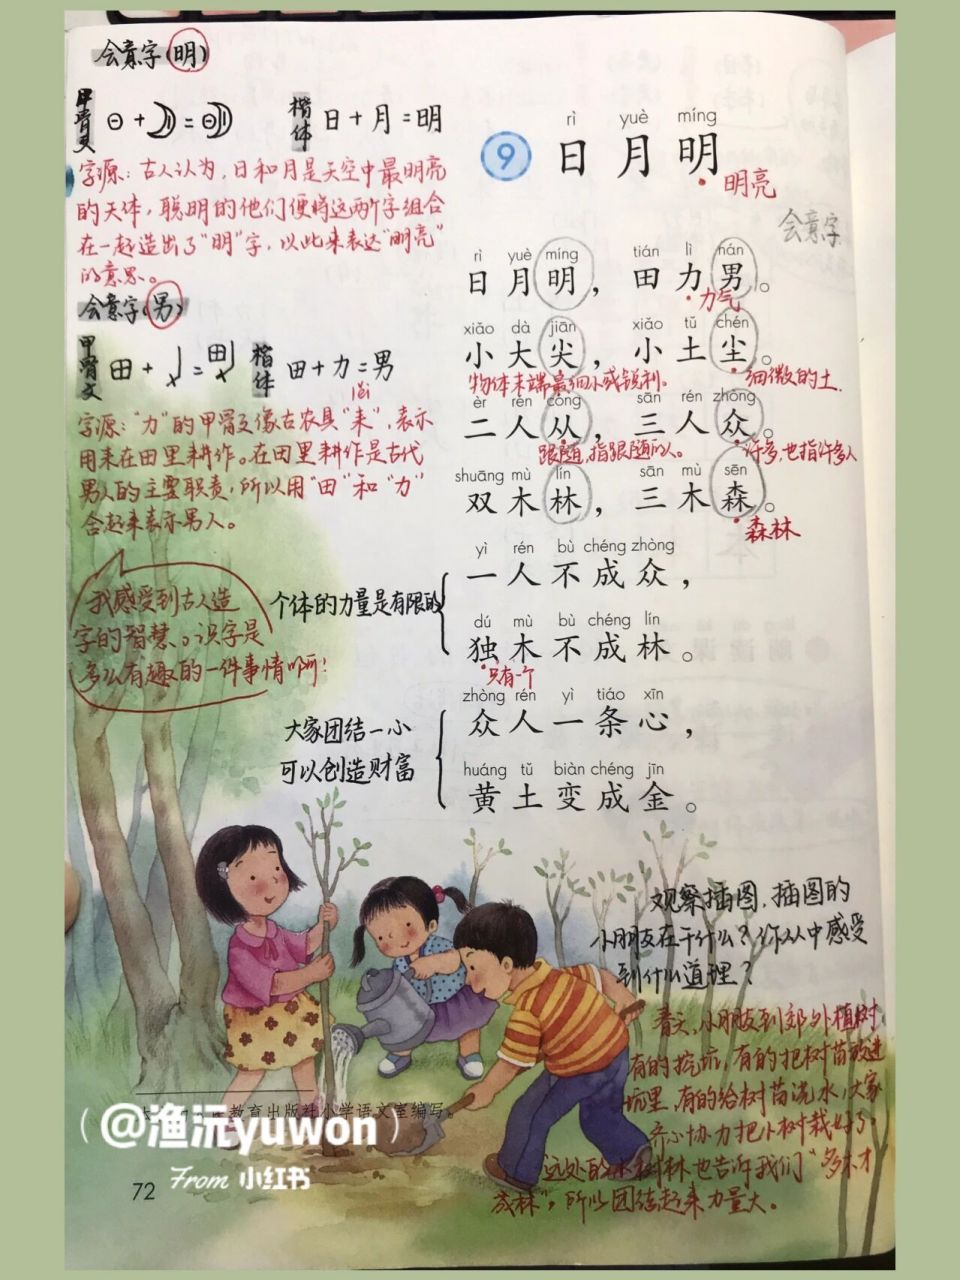 会意字(明)
甲骨文
楷体 日+月=明
字源：古人认为，日和月是天空中最明亮
的天体，聪明的他们便将这两个字组合
在一起造出了“明”字，以此来表达“明亮”
的意思。
会意字(男)
甲骨文
田+
楷体 田+力=男
字源：“力”的甲骨文像古农具“耒”，表示
用耒在田里耕作。在田里耕作是古代
男人的主要职责，所以用“田”和“力”
合起来表示男人。
我感受到古人造
字的智慧。识字是
多么有趣的一件事情啊！
rì yuè míng
9 日月明
明亮
会意字
rì yuè míng tián lì nán
日月明，田力男。
力气
xiǎo dà jiān xiǎo tǔ chén
小大尖，小土尘。
物体末端最细小或锐利。
细微的土.
èr rén cóng sān rén zhòng
二人从，三人众。
跟随，指跟随的人。
许多，也指许多人
shuāng mù lín sān mù sēn
双木林，三木森。
森林
yì rén bù chéng zhòng
一人不成众，
个体的力量是有限的
dú mù bù chéng lín
独木不成林。
只有一个
zhòng rén yì tiáo xīn
众人一条心，
大家团结一心
可以创造财富
huáng tǔ biàn chéng jīn
黄土变成金。
观察插图，插图的
小朋友在干什么？你从中感受
到什么道理？
春天，小朋友到郊外植树，
有的挖坑，有的把树苗放进
坑里，有的给树苗浇水，大家
齐心协力把小树栽好了。
远处的小树林也告诉我们“多木才
成林”，所以团结起来力量大。
教育出版社小学语文室编写。
(@渔沅yuwon)
From 小红书
72